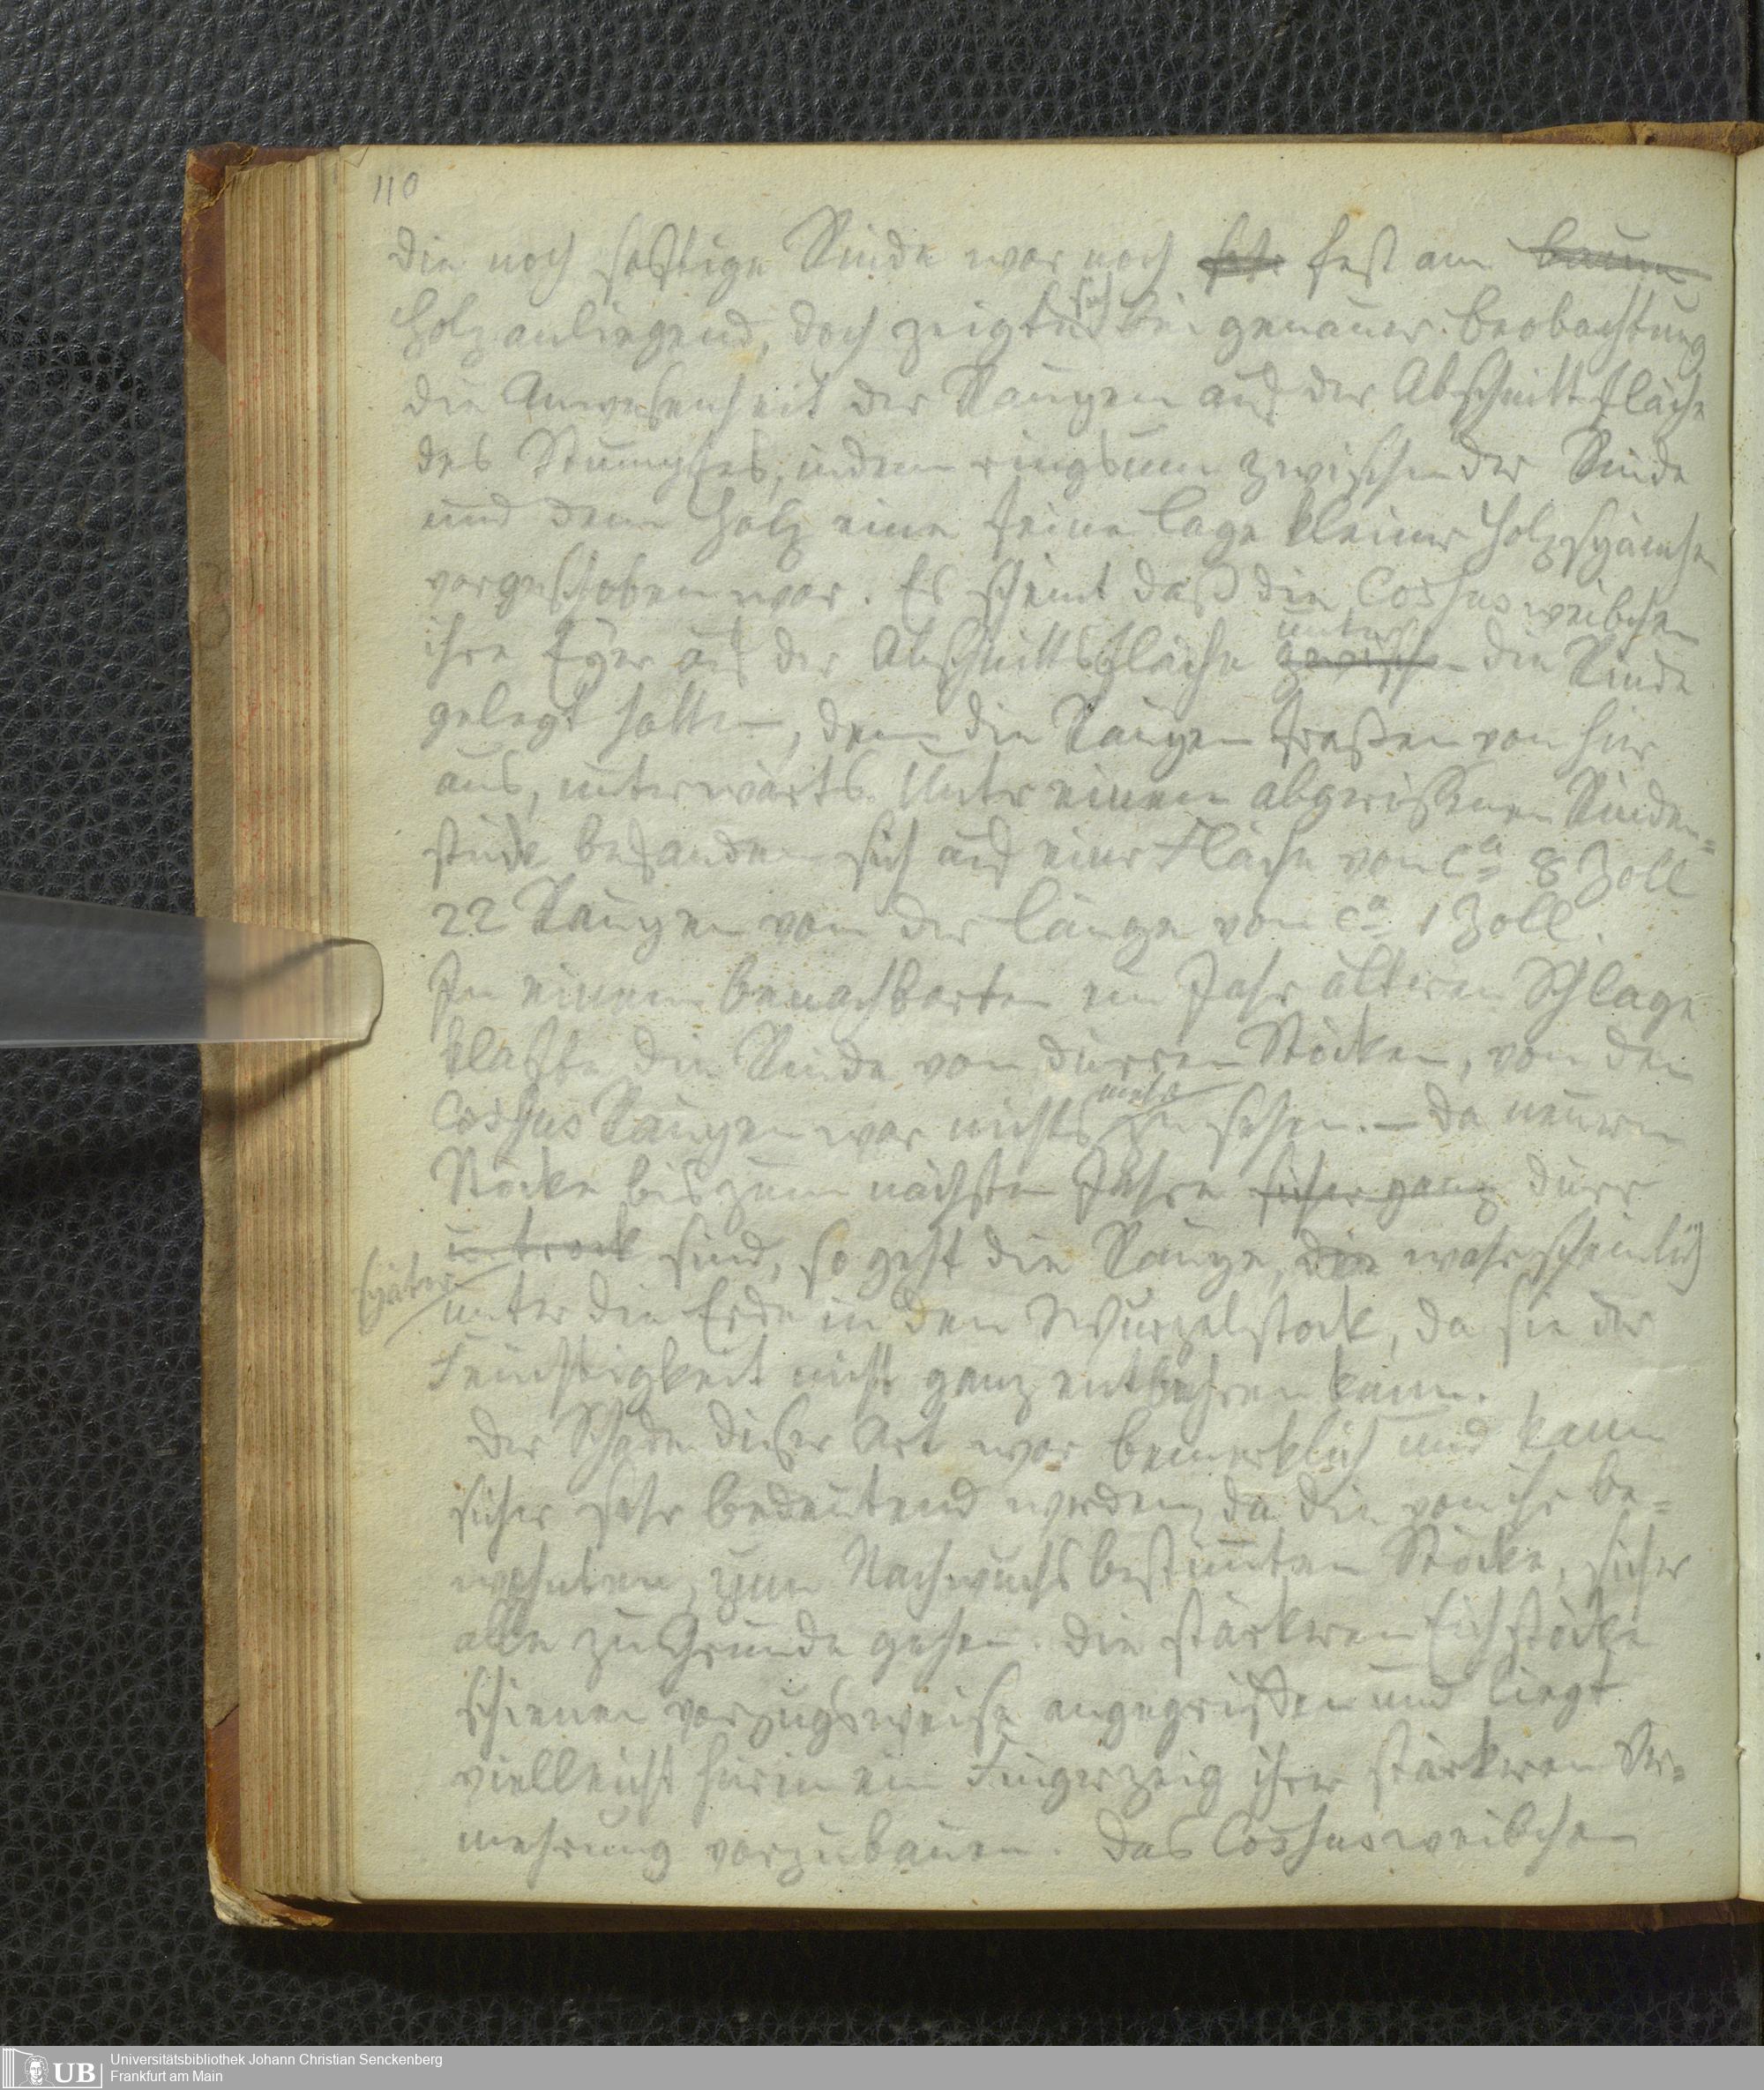 110
die noch saftige Rinde war noch fest am baum
Holz anliegend, doch zeigte sich bei genauer Beobachtung
die Anwesenheit der Raupen auf der Abschnittsfläche
des Stumpfes, indem ringsum zwischen der Rinde
und dem Holz eine feine Lage kleiner Holzspänchen
vorgeschoben war. Es scheint daß die Cossus weibchen
unter
ihre Eyer auf der Abschnittsfläche zwischen die Rinde
gelegt hatten, denn die Raupen fraßen von hier
aus, unterwärts. Unter einem abgerissenen Rinden=
stück befanden sich auf einer Fläche von ca 8 Zoll
22 Raupen von der Länge von ca 1 Zoll.
In einem benachbarten ein Jahr älteren Schlage
klaffte die Rinde von dürren Stöcken, von den
mehr
Cossus Raupen war nichts zu sehen. – Da neuere
Stöcke bis zum nächsten Jahre sicher ganz dürr
u. trock sind, so geht die Raupe, die wahrscheinlich
später
unter die Erde in den Wurzelstock, da sie der
Feuchtigkeit nicht ganz entbehren kann.
Der Schaden dieser Art war bemerklich und kann
sicher sehr bedeutend werden, da die von ihr be=
wohnten, zum Nachwuchs bestimten Stöcke, sicher
alle zu Grunde gehen. Die stärkeren Eichstöcke
schienen vorzugsweise angegriffen und liegt
vielleicht hierin ein Fingerzeig ihrer stärkeren Ver=
mehrung vorzubauen. Das Cossusweibchen
UB Universitätsbibliothek Johann Christian Senckenberg
Frankfurt am Main